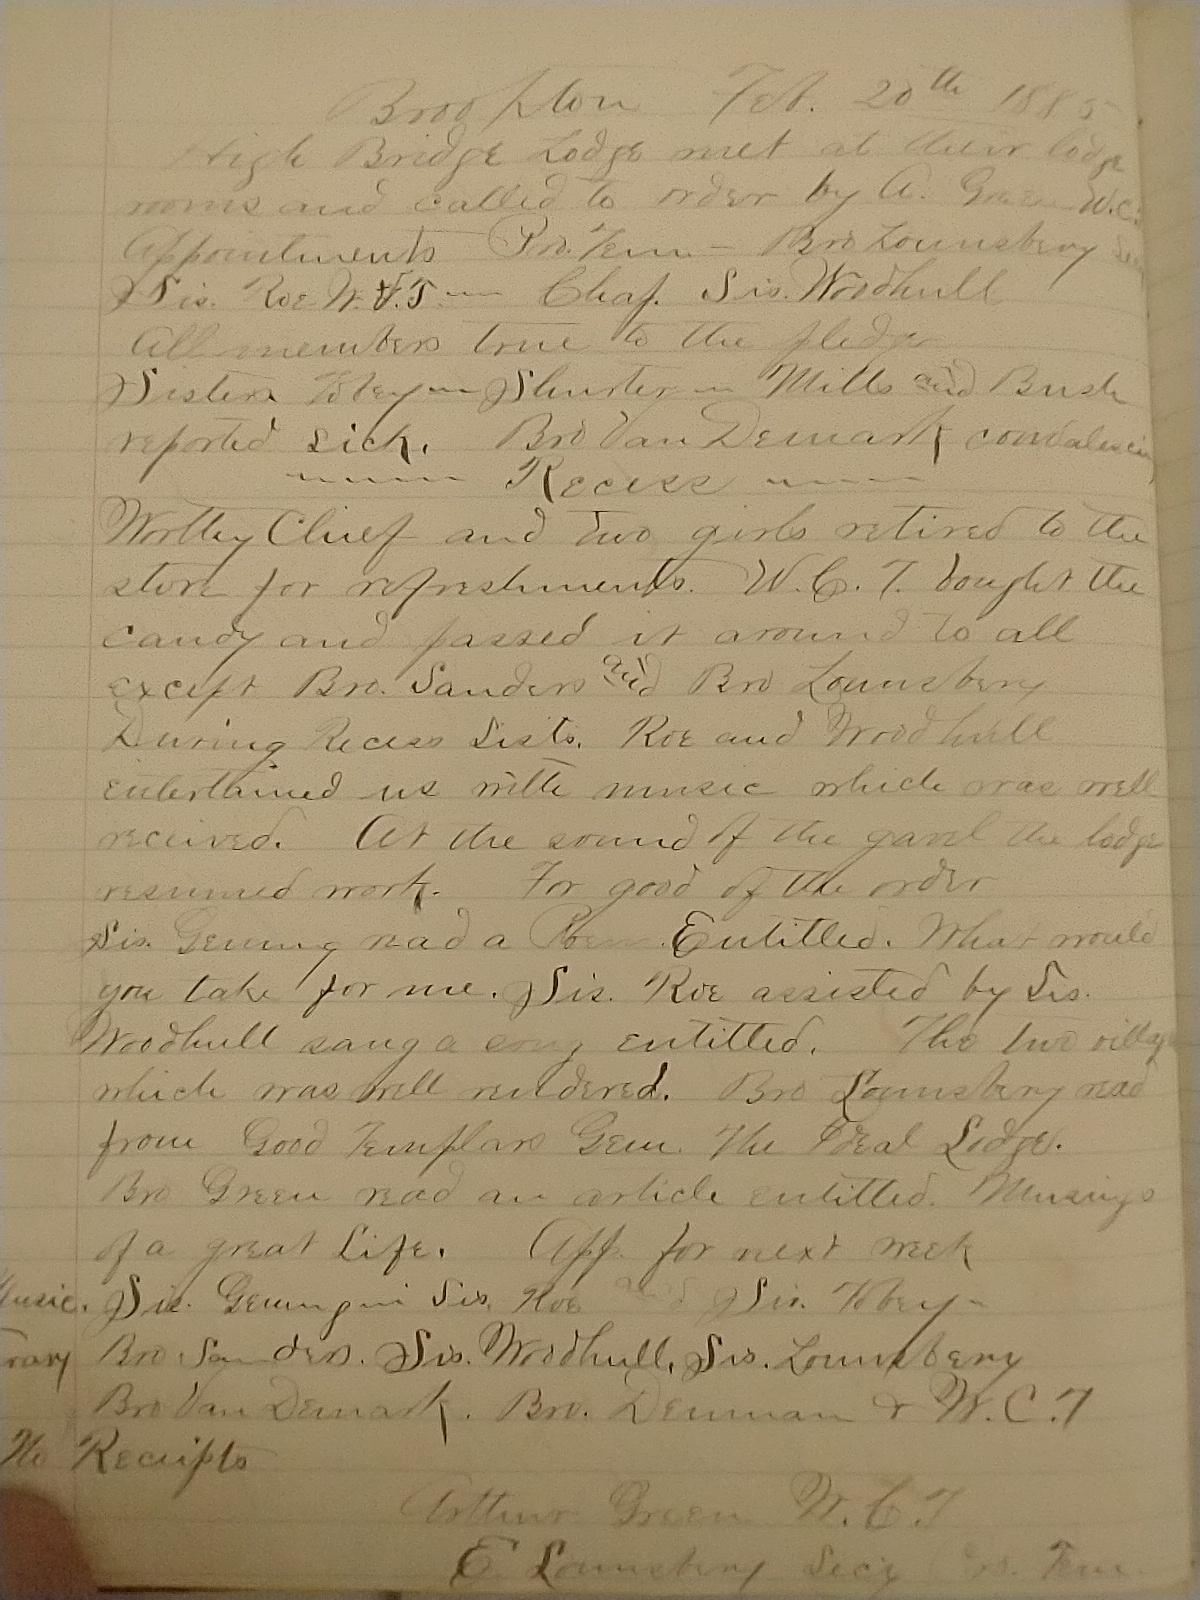 Brookton Feb. 20th 1885
High Bridge Lodge met at their lodge
rooms and called to order by A. Green W.C.
Appointments Pro. Tem — Bro Lounsbery Sec
Sis. Roe W.V.T. — Chap. Sis. Woodhull
All members true to the pledge
Sisters Tobey — Shurter — Mills and Bush
reported sick. Bro Van Demark convalescing
Recess
Worthy Chief and two girls retired to the
store for refreshments. W.C.T. bought the
candy and passed it around to all
except Bro. Sanders and Bro Lounsbery
During Recess Sists. Roe and Woodhull
entertained us with music which was well
received. At the sound of the gavel the lodge
resumed work. For good of the order
Sis. Genung read a Poem Entitled. What would
you take for me. Sis. Roe assisted by Sis.
Woodhull sang a song entitled. The two village
which was well rendered. Bro Lounsbery read
from Good Templars Gem. The Ideal Lodge.
Bro Green read an article entitled. Musings
of a great Life. App. for next week
Music. Sis. Genung — Sis. Roe and Sis. Tobey —
rary Bro Sanders. Sis. Woodhull, Sis. Lounsbery
Bro Van Demark. Bro. Denman & W.C.T
No Receipts
Arthur Green W.C.T
E Lounsbery Secy Pro. Tem.